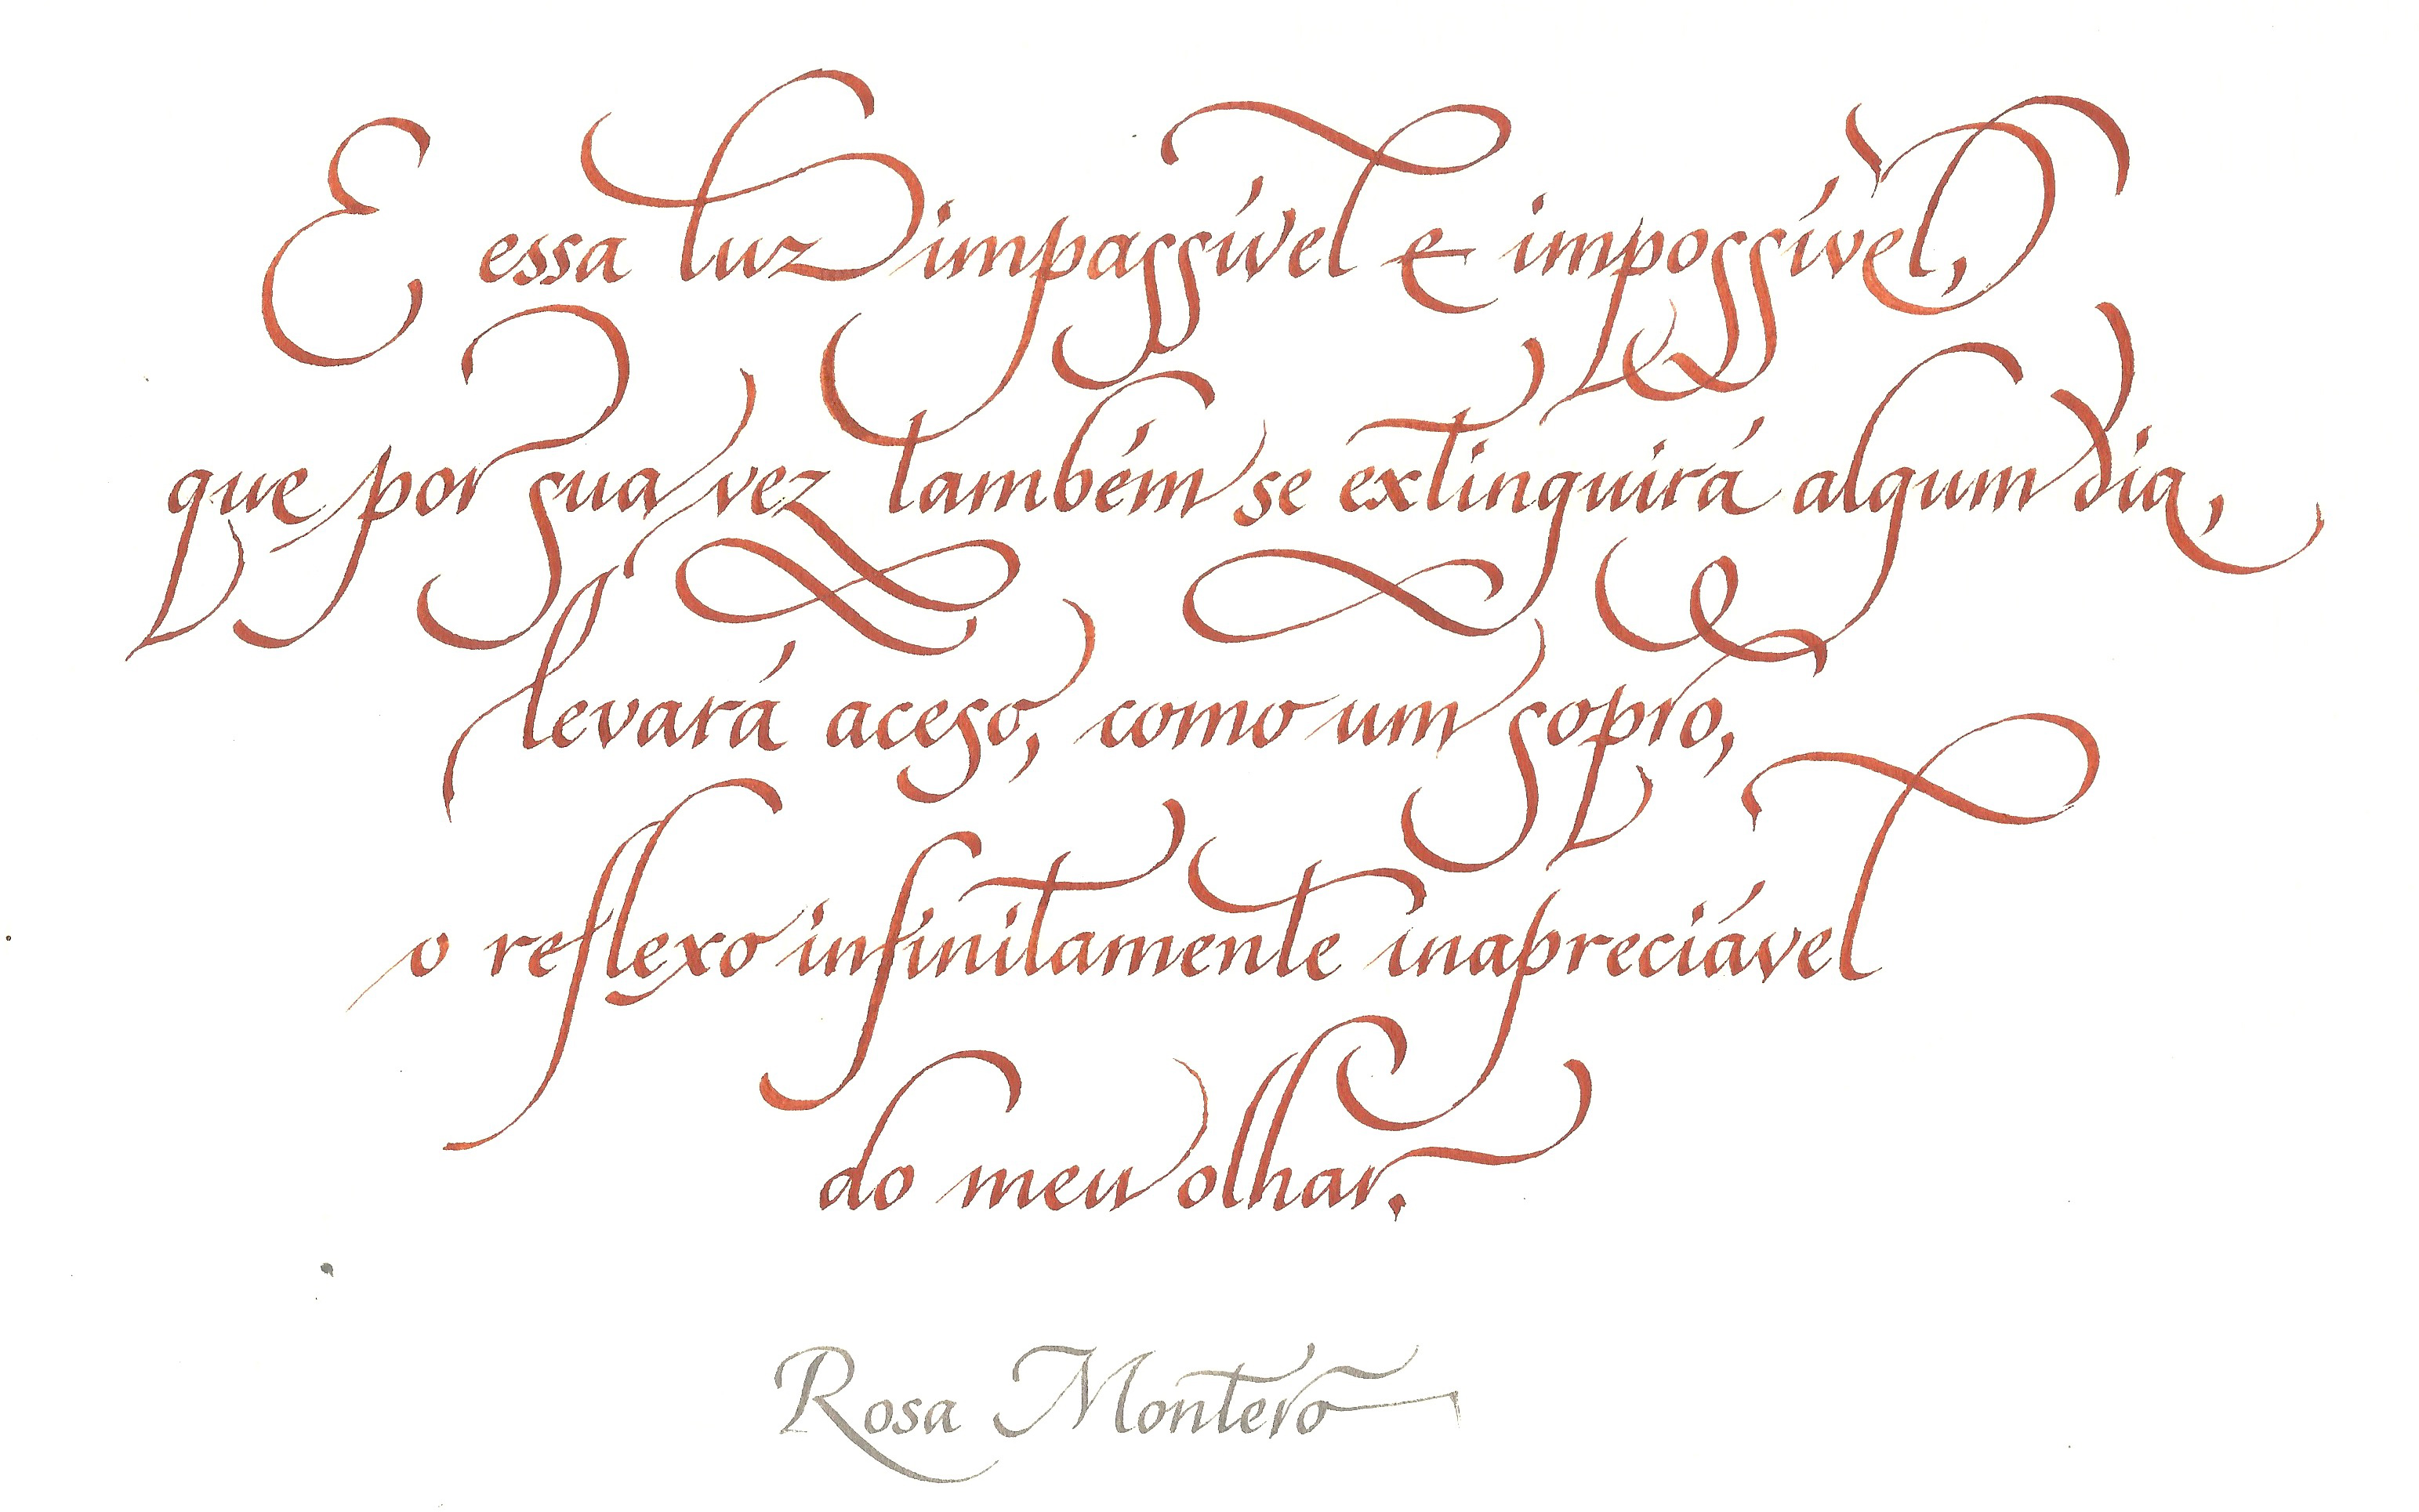 E essa luz impassível e impossível,
que por sua vez também se extinguirá algum dia,
levará aceso, como um sopro,
o reflexo infinitamente inapreciável
do meu olhar.
Rosa Montero